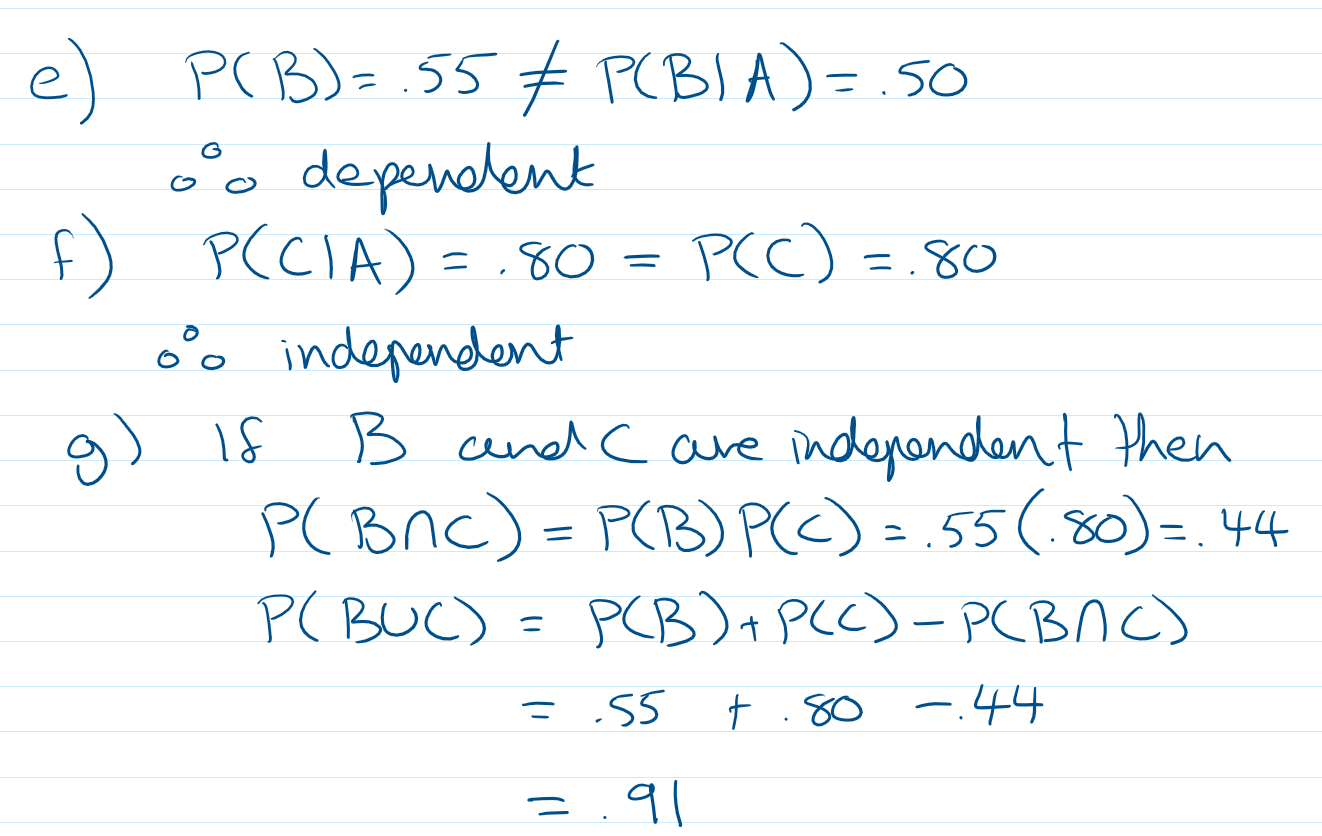 e) P(B) = .55 ≠ P(B|A) = .50
∴ dependent
f) P(C|A) = .80 = P(C) = .80
∴ independent
g) If B and C are independent then
P(B∩C) = P(B)P(C) = .55(.80) = .44
P(B∪C) = P(B) + P(C) - P(B∩C)
= .55 + .80 - .44
= .91